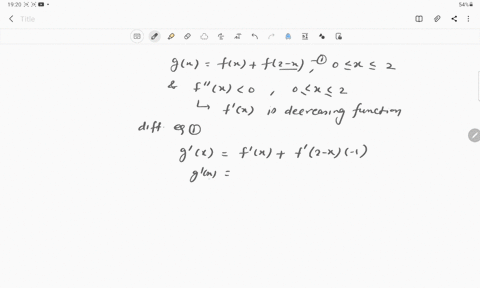 19:20
54%
Title
g(x) = f(x) + f(2-x) , —① 0 ≤ x ≤ 2
& f''(x) < 0 , 0 ≤ x ≤ 2
↳ f'(x) is decreasing function
diff. eq ①
g'(x) = f'(x) + f'(2-x)(-1)
g'(x) =